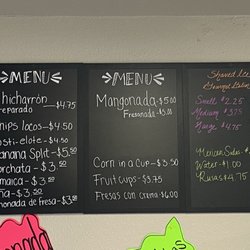 MENU
hicharrón
reparado $4.75
hips locos - $4.50
osti-elote - $4.50
anana Split - $5.50
orchata - $3.50
amaica - $3.50
ña - $3.50
monada de fresa - $3.50
MENU
Mangonada - $5.00
Fresonada $5.00
Corn in a Cup - $3.50
Fruit cups - $3.75
Fresas con crema - $6.00
Shaved Ice
Small $2.25
Medium $3.75
Large $4.75
Mexican Sodas
Water - $1.00
Rusas - $4.75
nonada